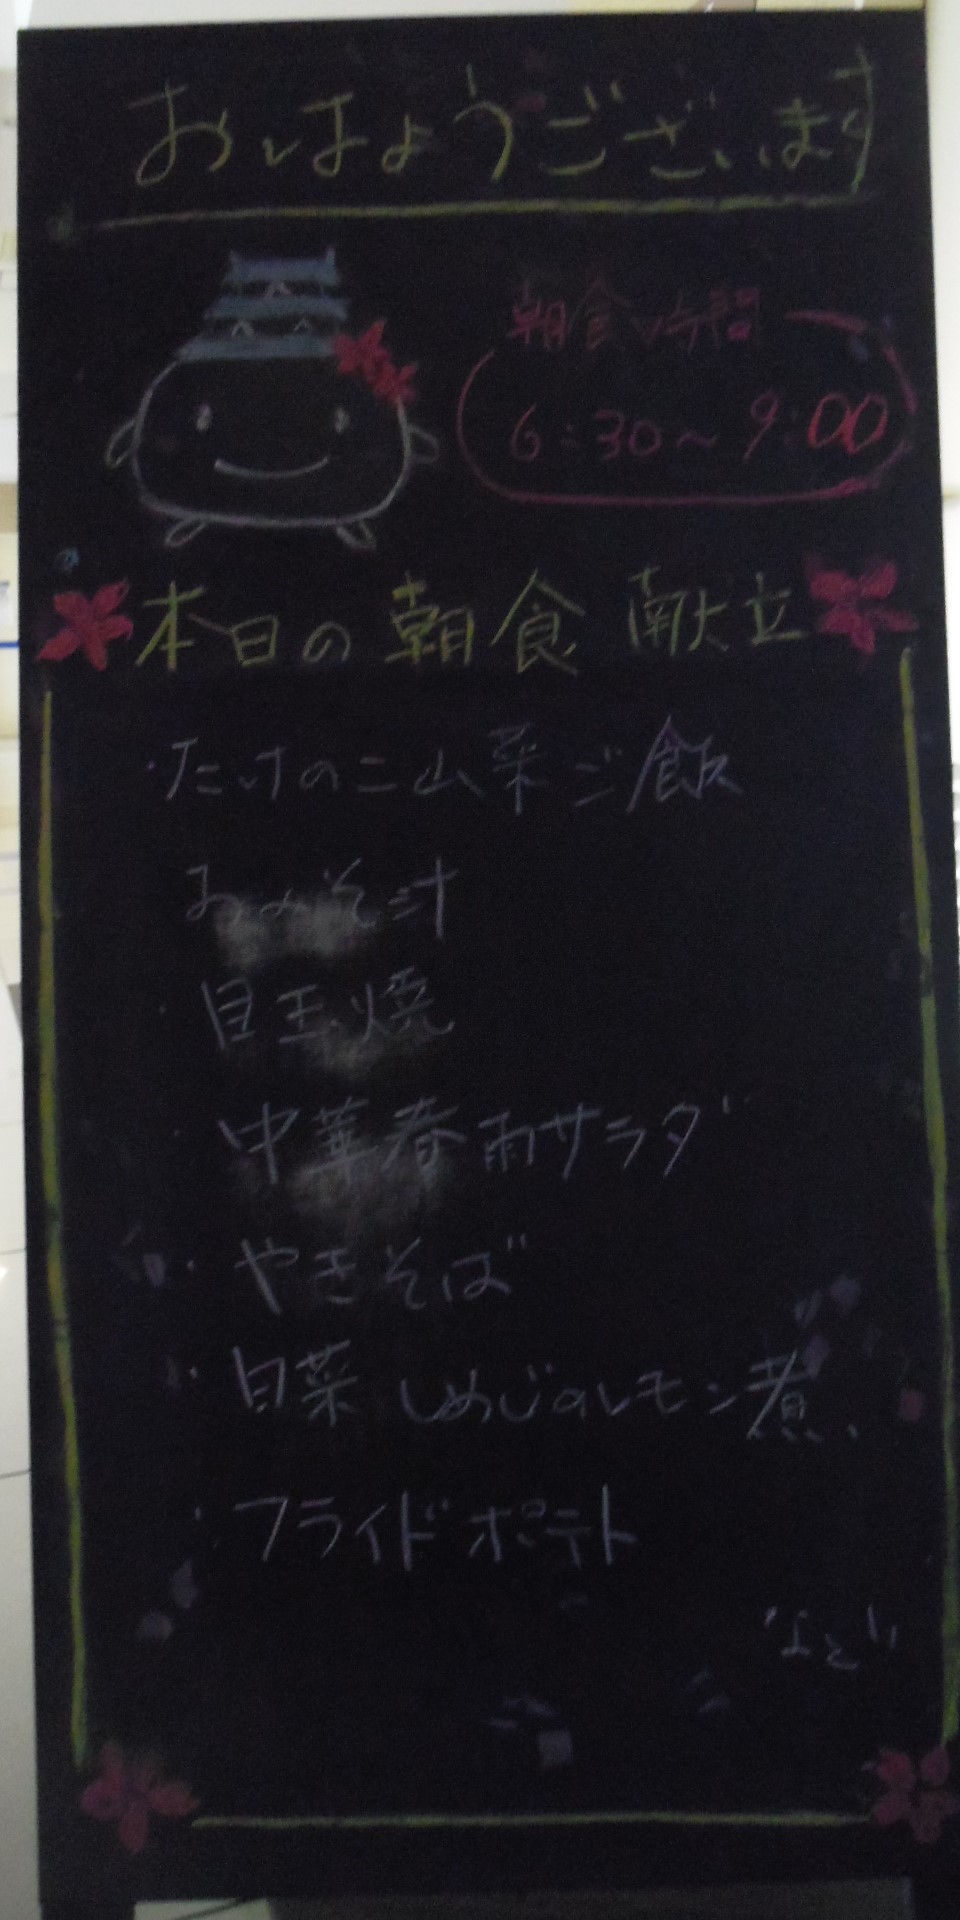 おはようございます
朝食時間
6:30～9:00
本日の朝食献立
・たけのこ山菜ご飯
おみそ汁
・目玉焼
・中華春雨サラダ
・やきそば
・白菜しめじのレモン煮
・フライドポテト
など